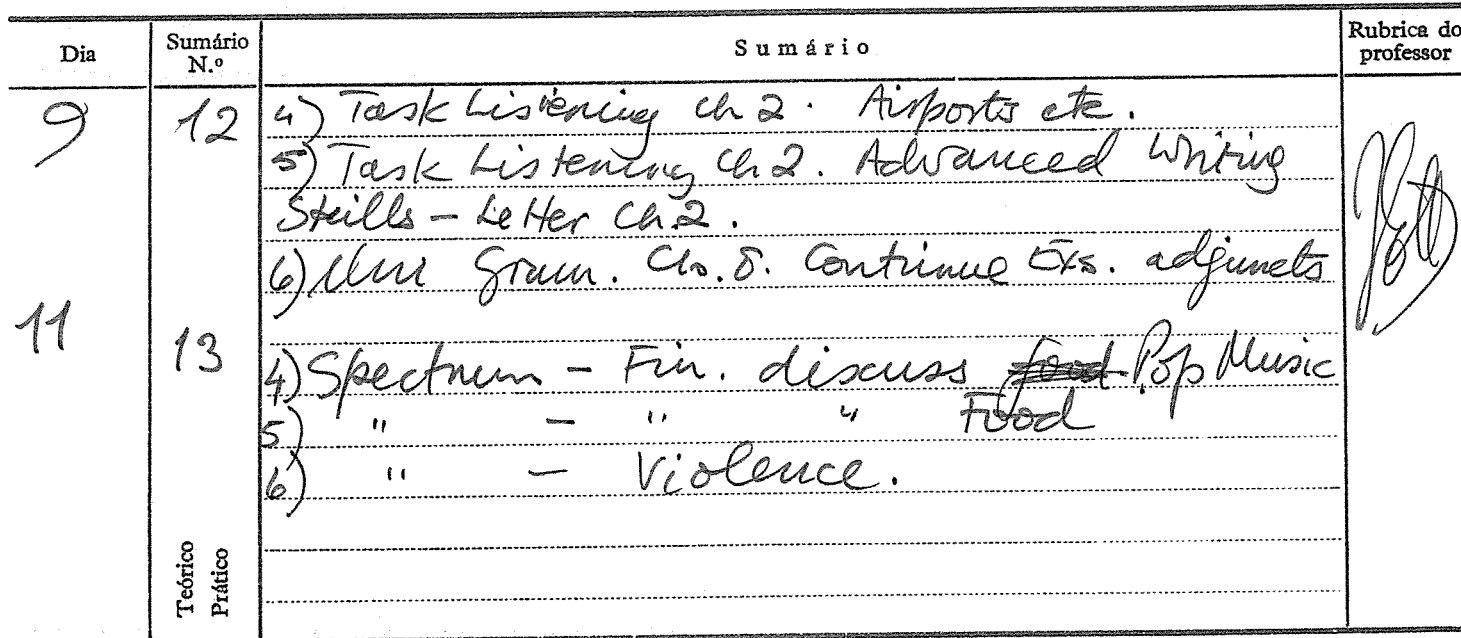 Dia
Sumário N.º
Sumário
Rubrica do professor
9 12 4) Task Listening Ch 2. Airports etc.
5) Task Listening Ch 2. Advanced Writing
Skills – Letter Ch.2.
6) Gram. Ch. 8. Continue Exs. adjuncts
11 13
4) Spectrum – Fin. discuss food Pop Music
5) " – " " Food
6) " – Violence.
Teórico
Prático